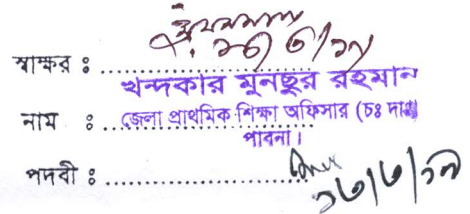 স্বাক্ষর :
খন্দকার মুনছুর রহমান
নাম : জেলা প্রাথমিক শিক্ষা অফিসার (চঃ দাঃ)
পাবনা।
পদবী :